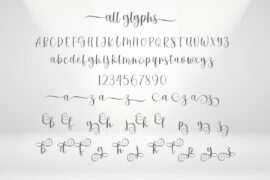 all glyphs
ABCDEFGHIJKLMNOPQRSTUVWXYZ
abcdefghijklmnopqrstuvwxyz
1234567890
a z a z Ca Z a z
b f g h j k p y z
b d f g h j k p y z